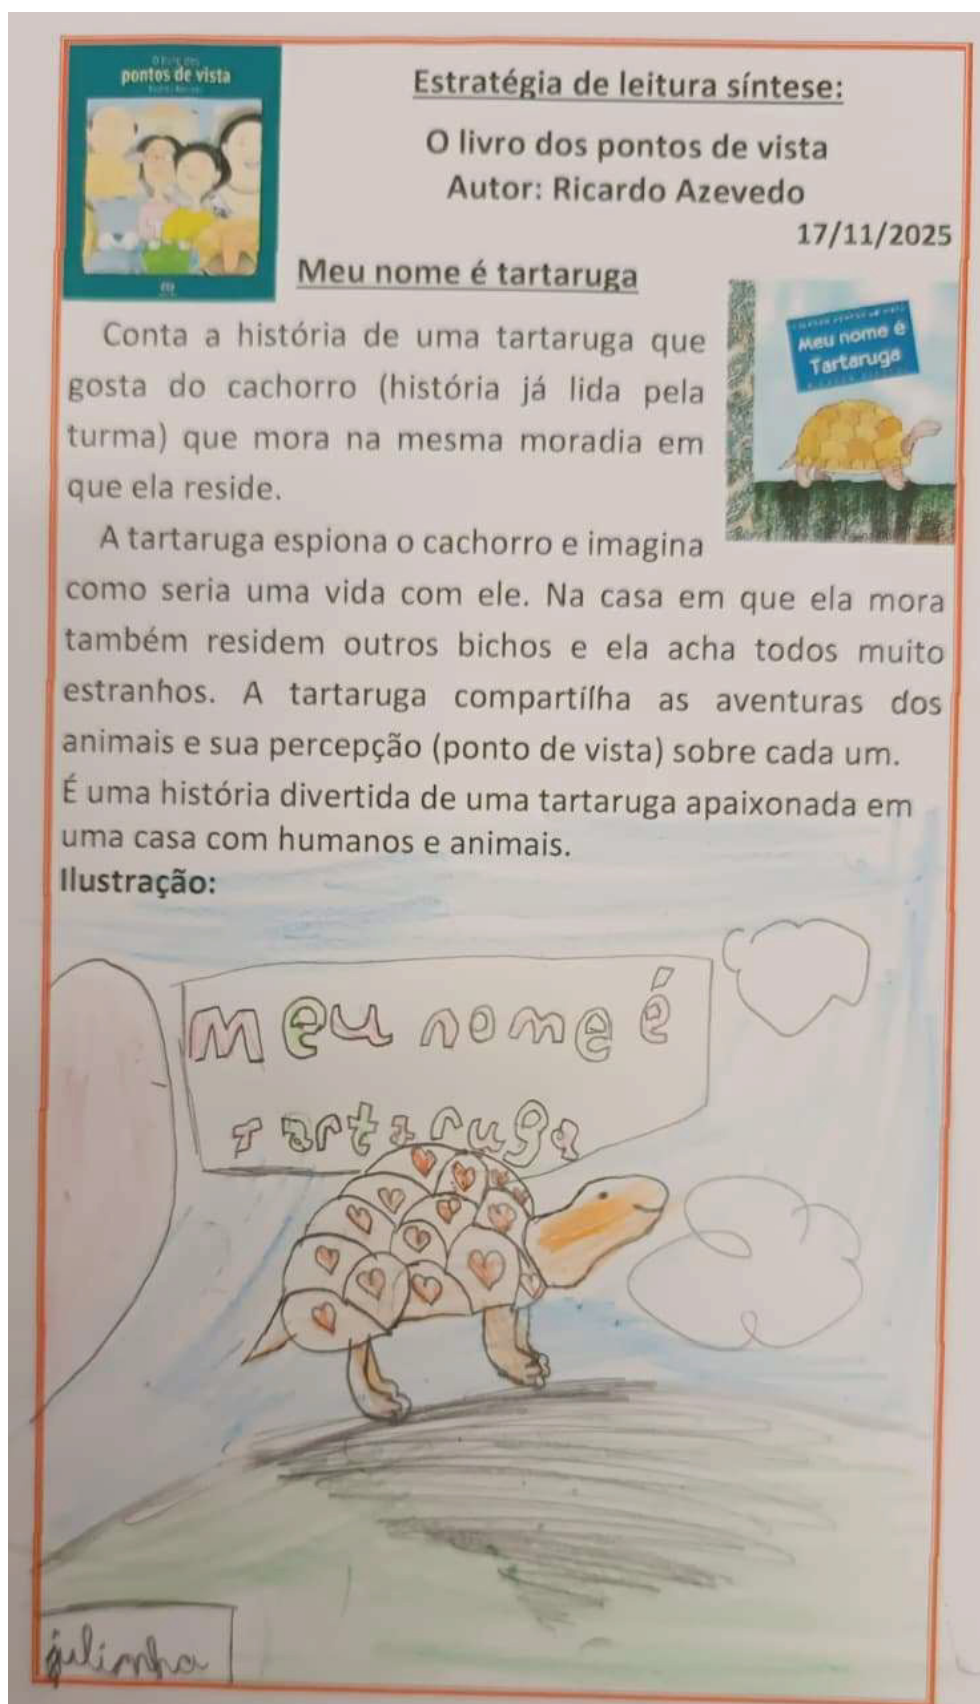 O livro dos
pontos de vista
Estratégia de leitura síntese:
O livro dos pontos de vista
Autor: Ricardo Azevedo
17/11/2025
Meu nome é tartaruga
Meu nome é
Tartaruga
Conta a história de uma tartaruga que
gosta do cachorro (história já lida pela
turma) que mora na mesma moradia em
que ela reside.
A tartaruga espiona o cachorro e imagina
como seria uma vida com ele. Na casa em que ela mora
também residem outros bichos e ela acha todos muito
estranhos. A tartaruga compartilha as aventuras dos
animais e sua percepção (ponto de vista) sobre cada um.
É uma história divertida de uma tartaruga apaixonada em
uma casa com humanos e animais.
Ilustração:
Meu nome é
tartaruga
julinha